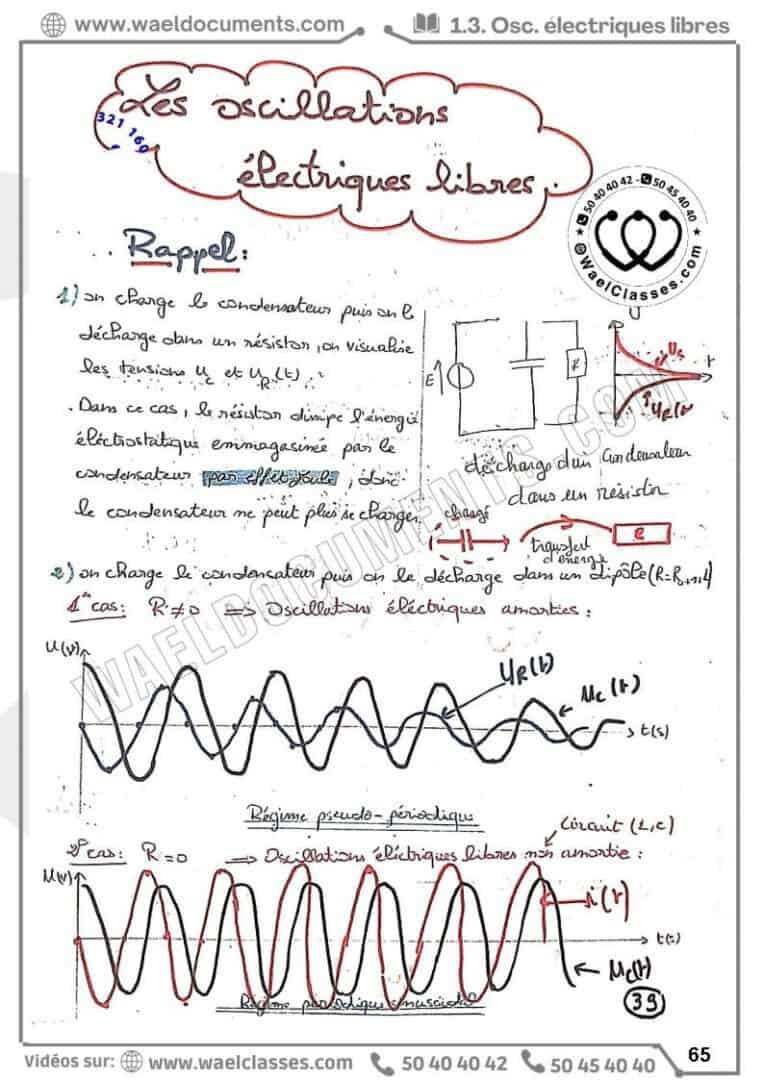 www.waeldocuments.com
1.3. Osc. électriques libres
Les oscillations
électriques libres.
321 160
50 40 40 42 - 50 45 40 40
@WaelClasses.com
Rappel:
1) on charge le condensateur puis on le
décharge dans un résistor, on visualise
les tensions Uc et UR(t).
. Dans ce cas, le résistor dissipe l'énergie
éléctrostatique emmagasinée par le
condensateur par effet Joule, donc
le condensateur ne peut plus se charger.
E
R
U
t
UR(t)
décharge d'un condensateur
dans un résistor
chargé
transfert
d'énergie
2) on charge le condensateur puis on le décharge dans un dipôle
1er cas: R≠0 => Oscillations éléctriques amorties :
U(v)
UR(t)
Uc(t)
t(s)
Régime pseudo-périodique
circuit (L,C)
2e cas: R=0 => Oscillations éléctriques libres non amortie :
U(v)
i(t)
t(s)
Uc(t)
Régime périodique sinusoidal
39
WAELDOCUMENTS.COM
65
Vidéos sur: www.waelclasses.com 50 40 40 42 50 45 40 40